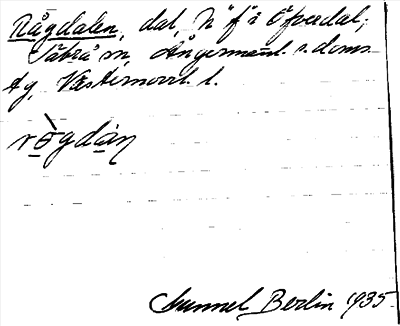 Rågdalen, dal, N f i Överdal,
Säbrå sn, Ångermanl. s. doms-
ag, Västernorrl. l.
rògdàn
Gunnel Berlin 1935